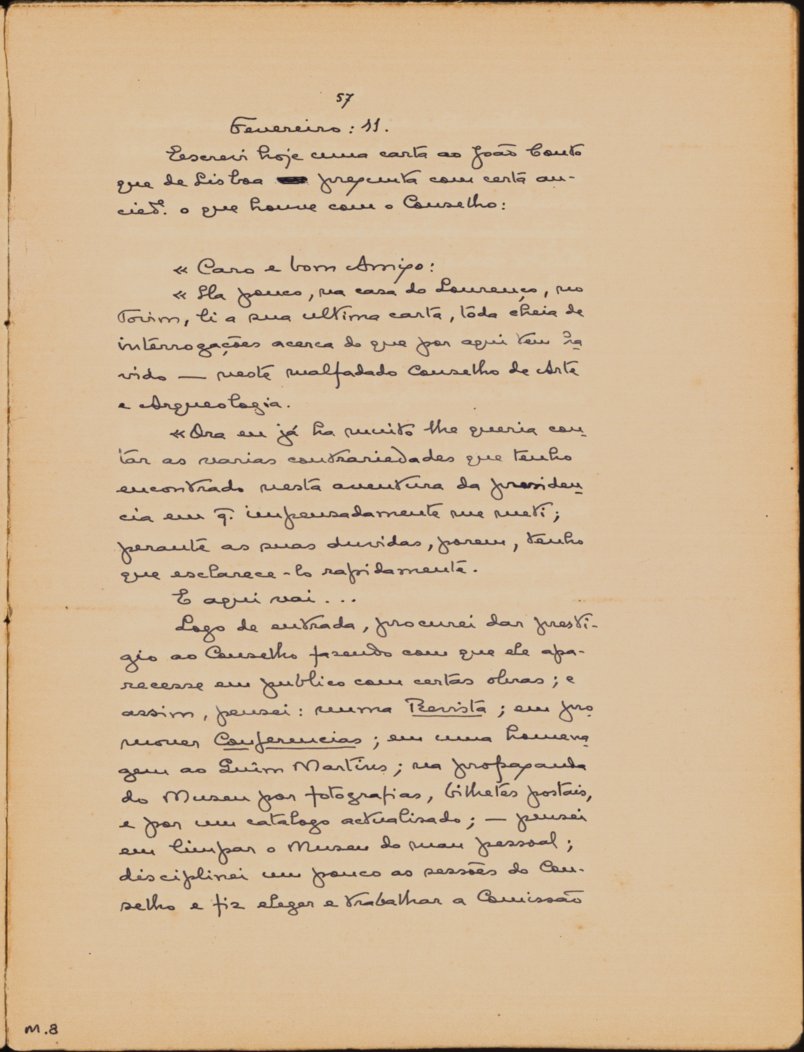 57
Fevereiro: 11.
Escrevi hoje uma carta ao João Couto
que de Lisboa pregunta com certa an-
cied.e o que houve com o Conselho:
« Caro e bom Amigo:
« Ha pouco, na casa do Lourenço, no
Tovim, li a sua ultima carta, tôda cheia de
interrogações acerca do que por aqui tem ha
vido — neste malfadado Conselho de Arte
e Arqueologia.
« Ora eu já ha muito lhe queria con-
tar as varias contrariedades que tenho
encontrado nesta aventura da presiden-
cia em q. impensadamente me meti;
perante as suas duvidas, porem, tenho
que esclarece-lo rapidamente.
E aqui vai...
Logo de entrada, procurei dar presti-
gio ao Conselho fazendo com que ele apa-
recesse em publico com certas obras; e
assim, pensei: numa Revista; em pro
mover Conferencias; em uma homena-
gem ao Quim Martins; na propaganda
do Museu por fotografias, bilhetes postais,
e por um catalogo actualisado; — pensei
em limpar o Museu do mau pessoal;
disciplinei um pouco as sessões do Con-
selho e fiz eleger e trabalhar a Comissão
M.8